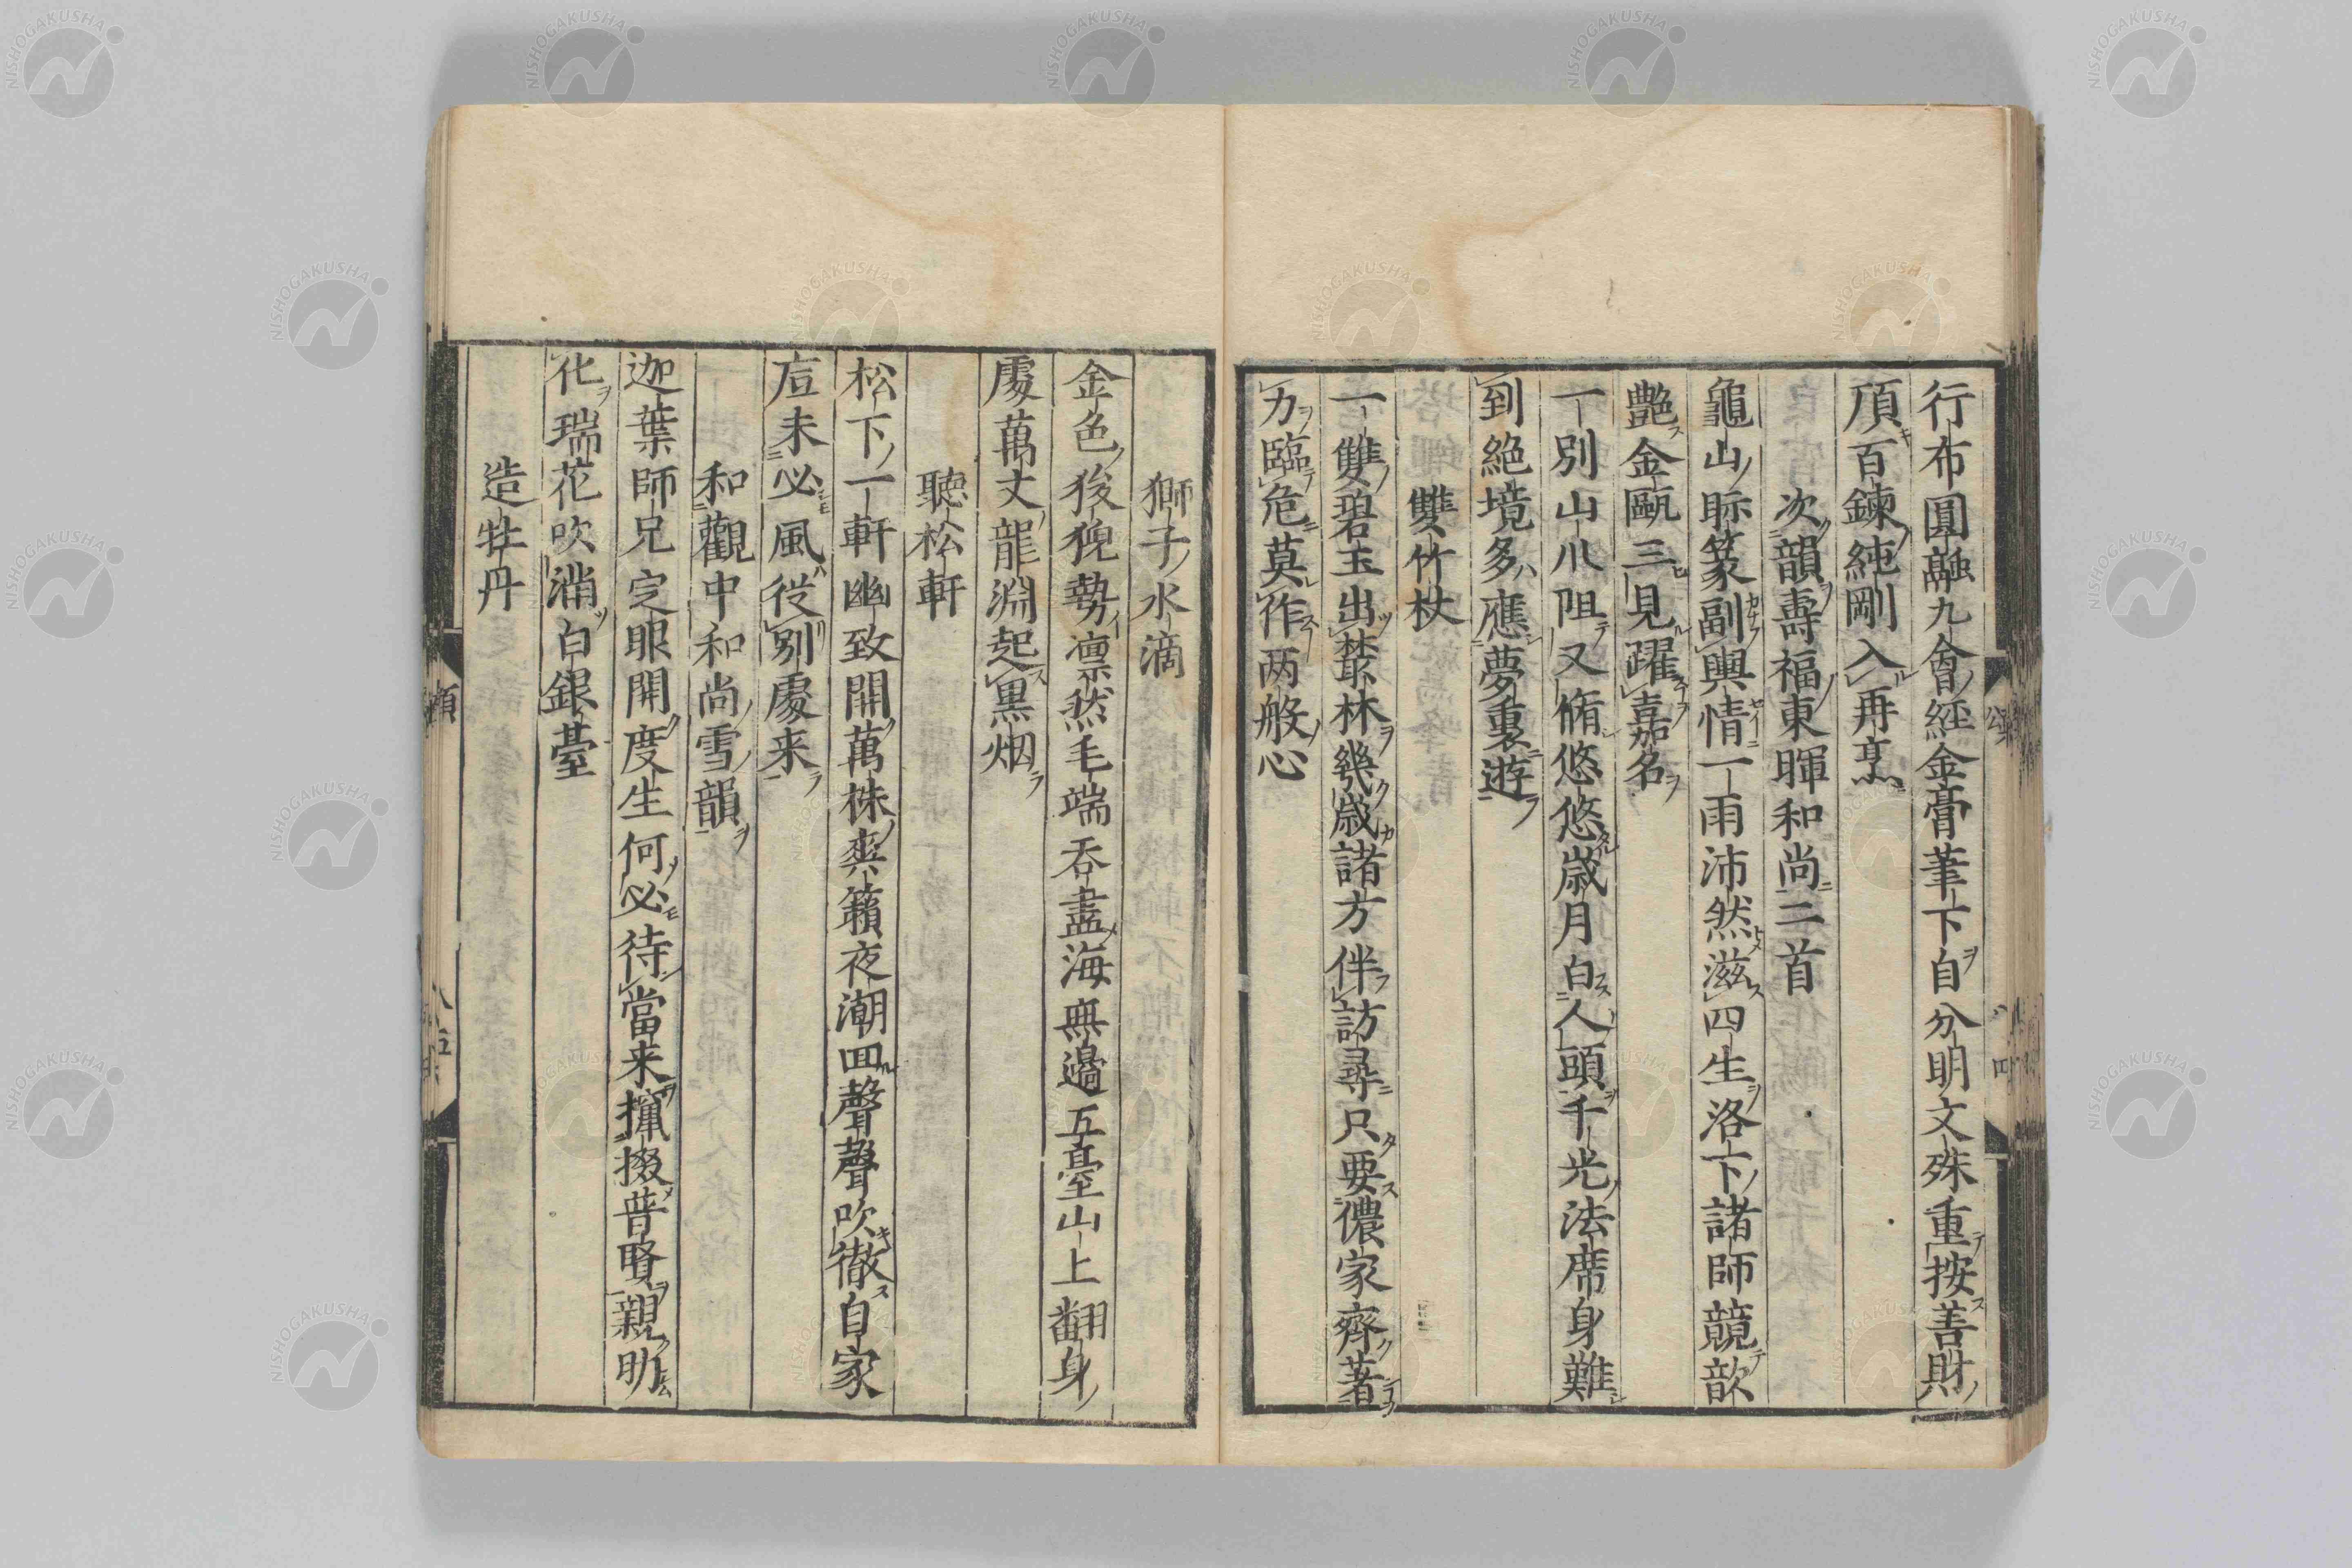 行布圓融九會経金膏筆下自分明文殊重按善財
頂百鍊純剛入再烹
次韻壽福東暉和尚二首
龜山眎篆副輿情一雨沛然滋四生洛下諸師競歆
艶金甌三見躍嘉名
一別山川阻又脩悠悠歳月白人頭千光法席身難
到絶境多應夢裏遊
雙竹杖
一雙碧玉出叢林幾歳諸方伴訪尋只要儂家齊著
力臨危莫作两般心
獅子水滴
金色狻猊勢凛然毛端吞盡海無邊五臺山上翻身
處萬丈龍淵起黒烟
聴松軒
松下一軒幽致開萬株爽籟夜潮回聲聲吹徹自家
底未必風従別處来
和觀中和尚雪韻
迦葉師兄定眼開度生何必待當来攛掇普賢親助
化瑞花吹滿白銀臺
造牡丹